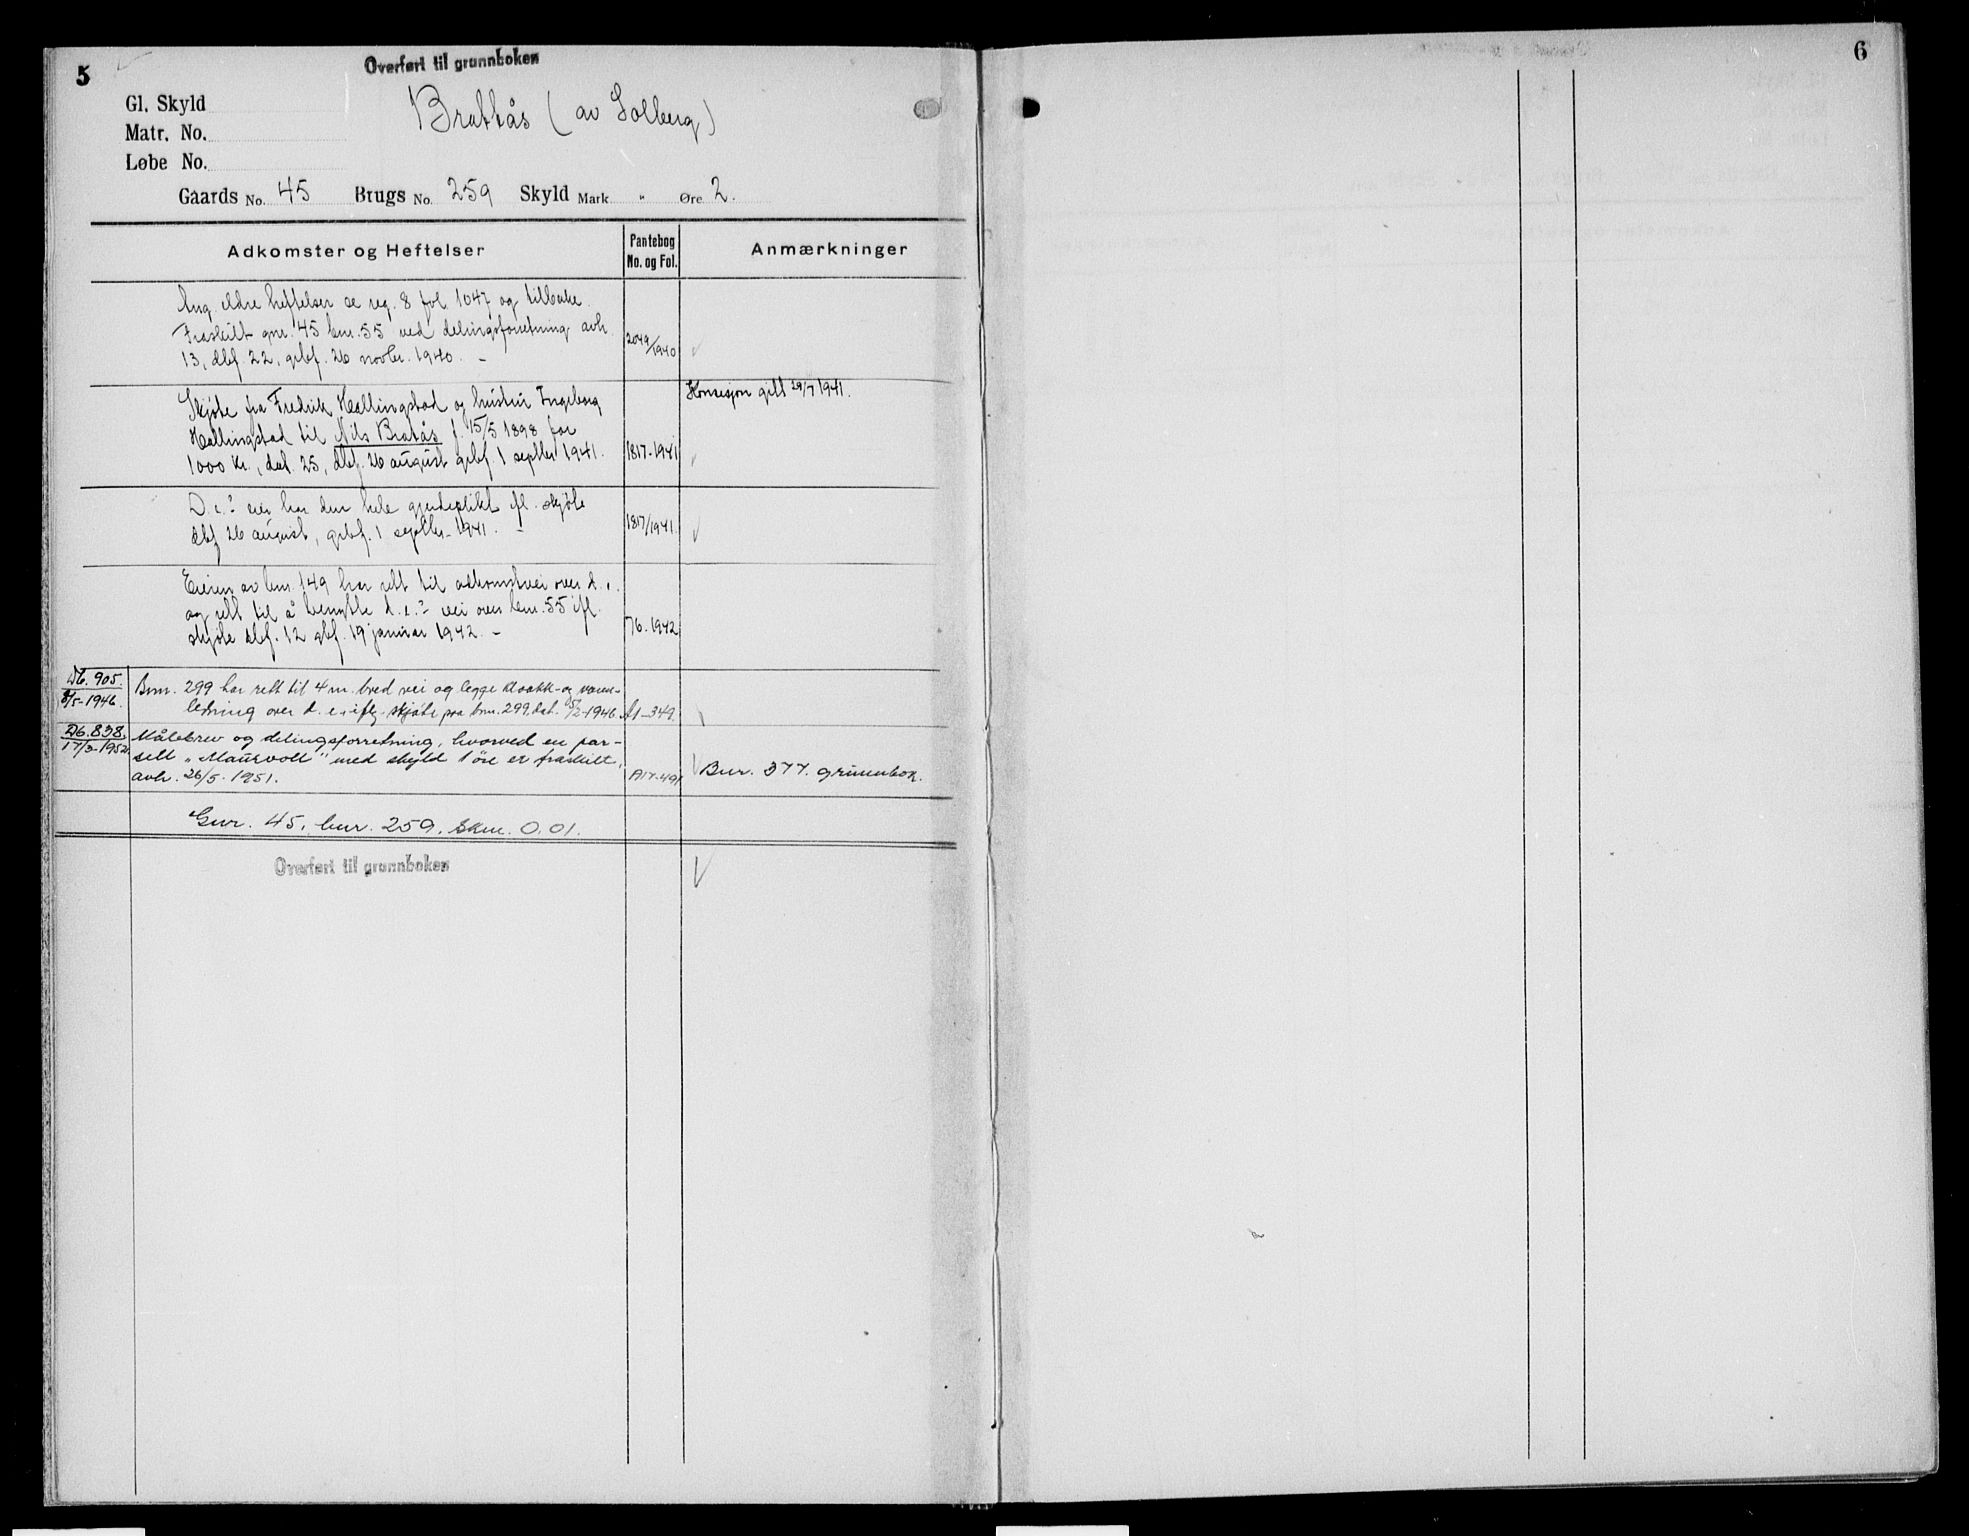 5
Overført til grunnboken
6
Gl. Skyld
Brattås (av Solberg)
Matr. No.
Løbe No.
Gaards No. 45 Brugs No. 259 Skyld Mark " Øre 2.
Adkomster og Heftelser
Pantebog
No. og Fol.
Anmærkninger
Ang. eldre heftelser se reg. 8 fol 1047 og tilbake.
Fraskilt gnr. 45 bnr. 55 ved delingsforretning avh.
13, dbf. 22, grbf. 26 novbr. 1940. -
2049/1940
Skjøte fra Fredrik Hallingstad og hustru Ingeborg
Hallingstad til Nils Bratås f. 15/5 1898 for
1000 kr., dat. 25, dbf. 26 august grbf. 1 septbr 1941.
1817-1941
Konsesjon gitt 29/7 1941.
D.e.s eier har den hele gjerdeplikt ifl. skjøte
dbf 26 august, grbf. 1 septbr. 1941. -
1817/1941.
Eieren av bnr. 149 har rett til adkomstvei over d.e.
og rett til å benytte d.e.s vei over bnr. 55 ifl.
skjøte dbf. 12 gbf. 19 januar 1942. -
76.1942
Db. 905.
8/5-1946.
Bnr. 299 har rett til 4 m. bred vei og legge kloakk- og vann-
ledning over d. e. iflg. skjøte fra bnr. 299, dat. /2-1946.
A1-349.
Db. 838.
17/3-1952.
Målebrev og delingsforretning, hvorved en par-
sell "Maurvoll" med skyld 1 øre er fraskilt,
avh. 26/5-1951.
A17-491
Bnr. 377. grunnbok.
Gnr. 45, bnr. 259. Skm. 0.01.
Overført til grunnboken